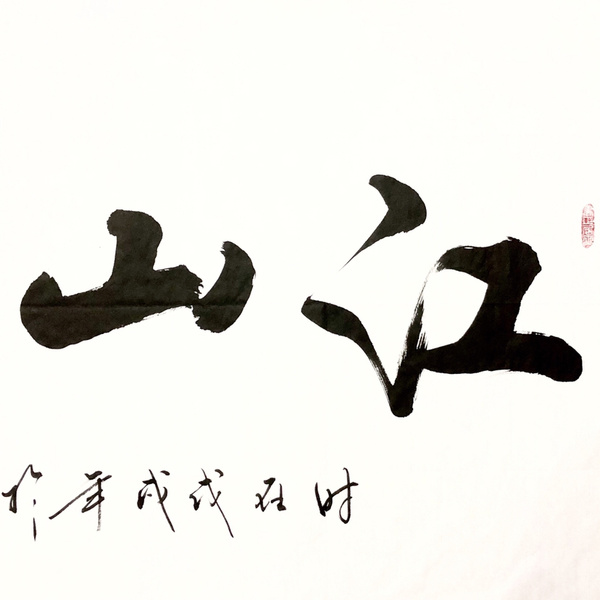 江山
时在戊戌年於